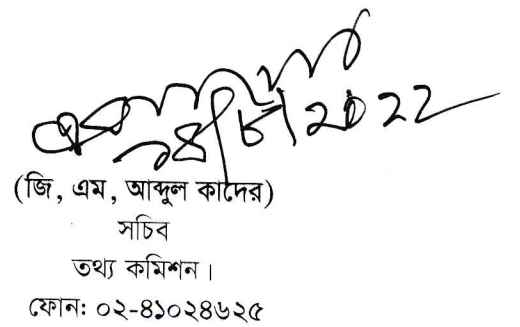 (জি, এম, আব্দুল কাদের)
সচিব
তথ্য কমিশন।
ফোন: ০২-৪১০২৪৬২৫